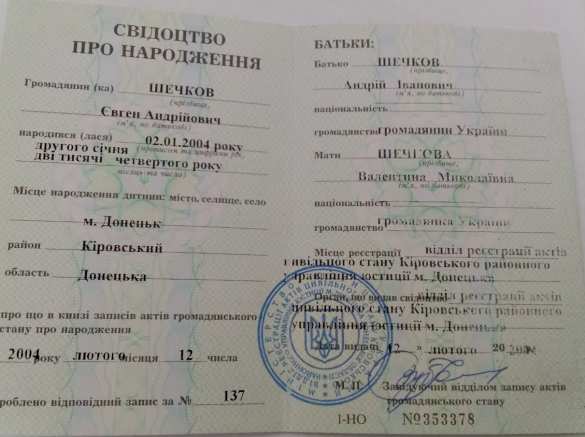 СВІДОЦТВО
ПРО НАРОДЖЕННЯ
Громадянин (ка) ШЕЧКОВ
(прізвище,
Євген Андрійович
ім'я, по батькові)
народився (лася) 02.01.2004 року
другого січня (прописом та цифрами рік,
дві тисячі четвертого року
місяць та число)
Місце народження дитини: місто, селище, село
м. Донецьк
район Кіровський
область Донецька
про що в книзі записів актів громадянського
стану про народження
2004 року лютого місяця 12 числа
роблено відповідний запис за № 137
БАТЬКИ:
Батько ШЕЧКОВ
(прізвище,
Андрій Іванович
ім'я, по батькові)
національність
громадянство громадянин України
Мати ШЕЧКОВА
(прізвище,
Валентина Миколаївна
ім'я, по батькові)
національність
громадянство громадянка України
Місце реєстрації відділ реєстрації актів
цивільного стану Кіровського районного
управління юстиції м. Донецька
Орган, що видав свідоцтво відділ реєстрації актів
цивільного стану Кіровського районного
управління юстиції м. Донецька
дата видачі 12 " лютого 20
М. П. Завідуючий відділом запису актів
громадянського стану
І-НО №353378